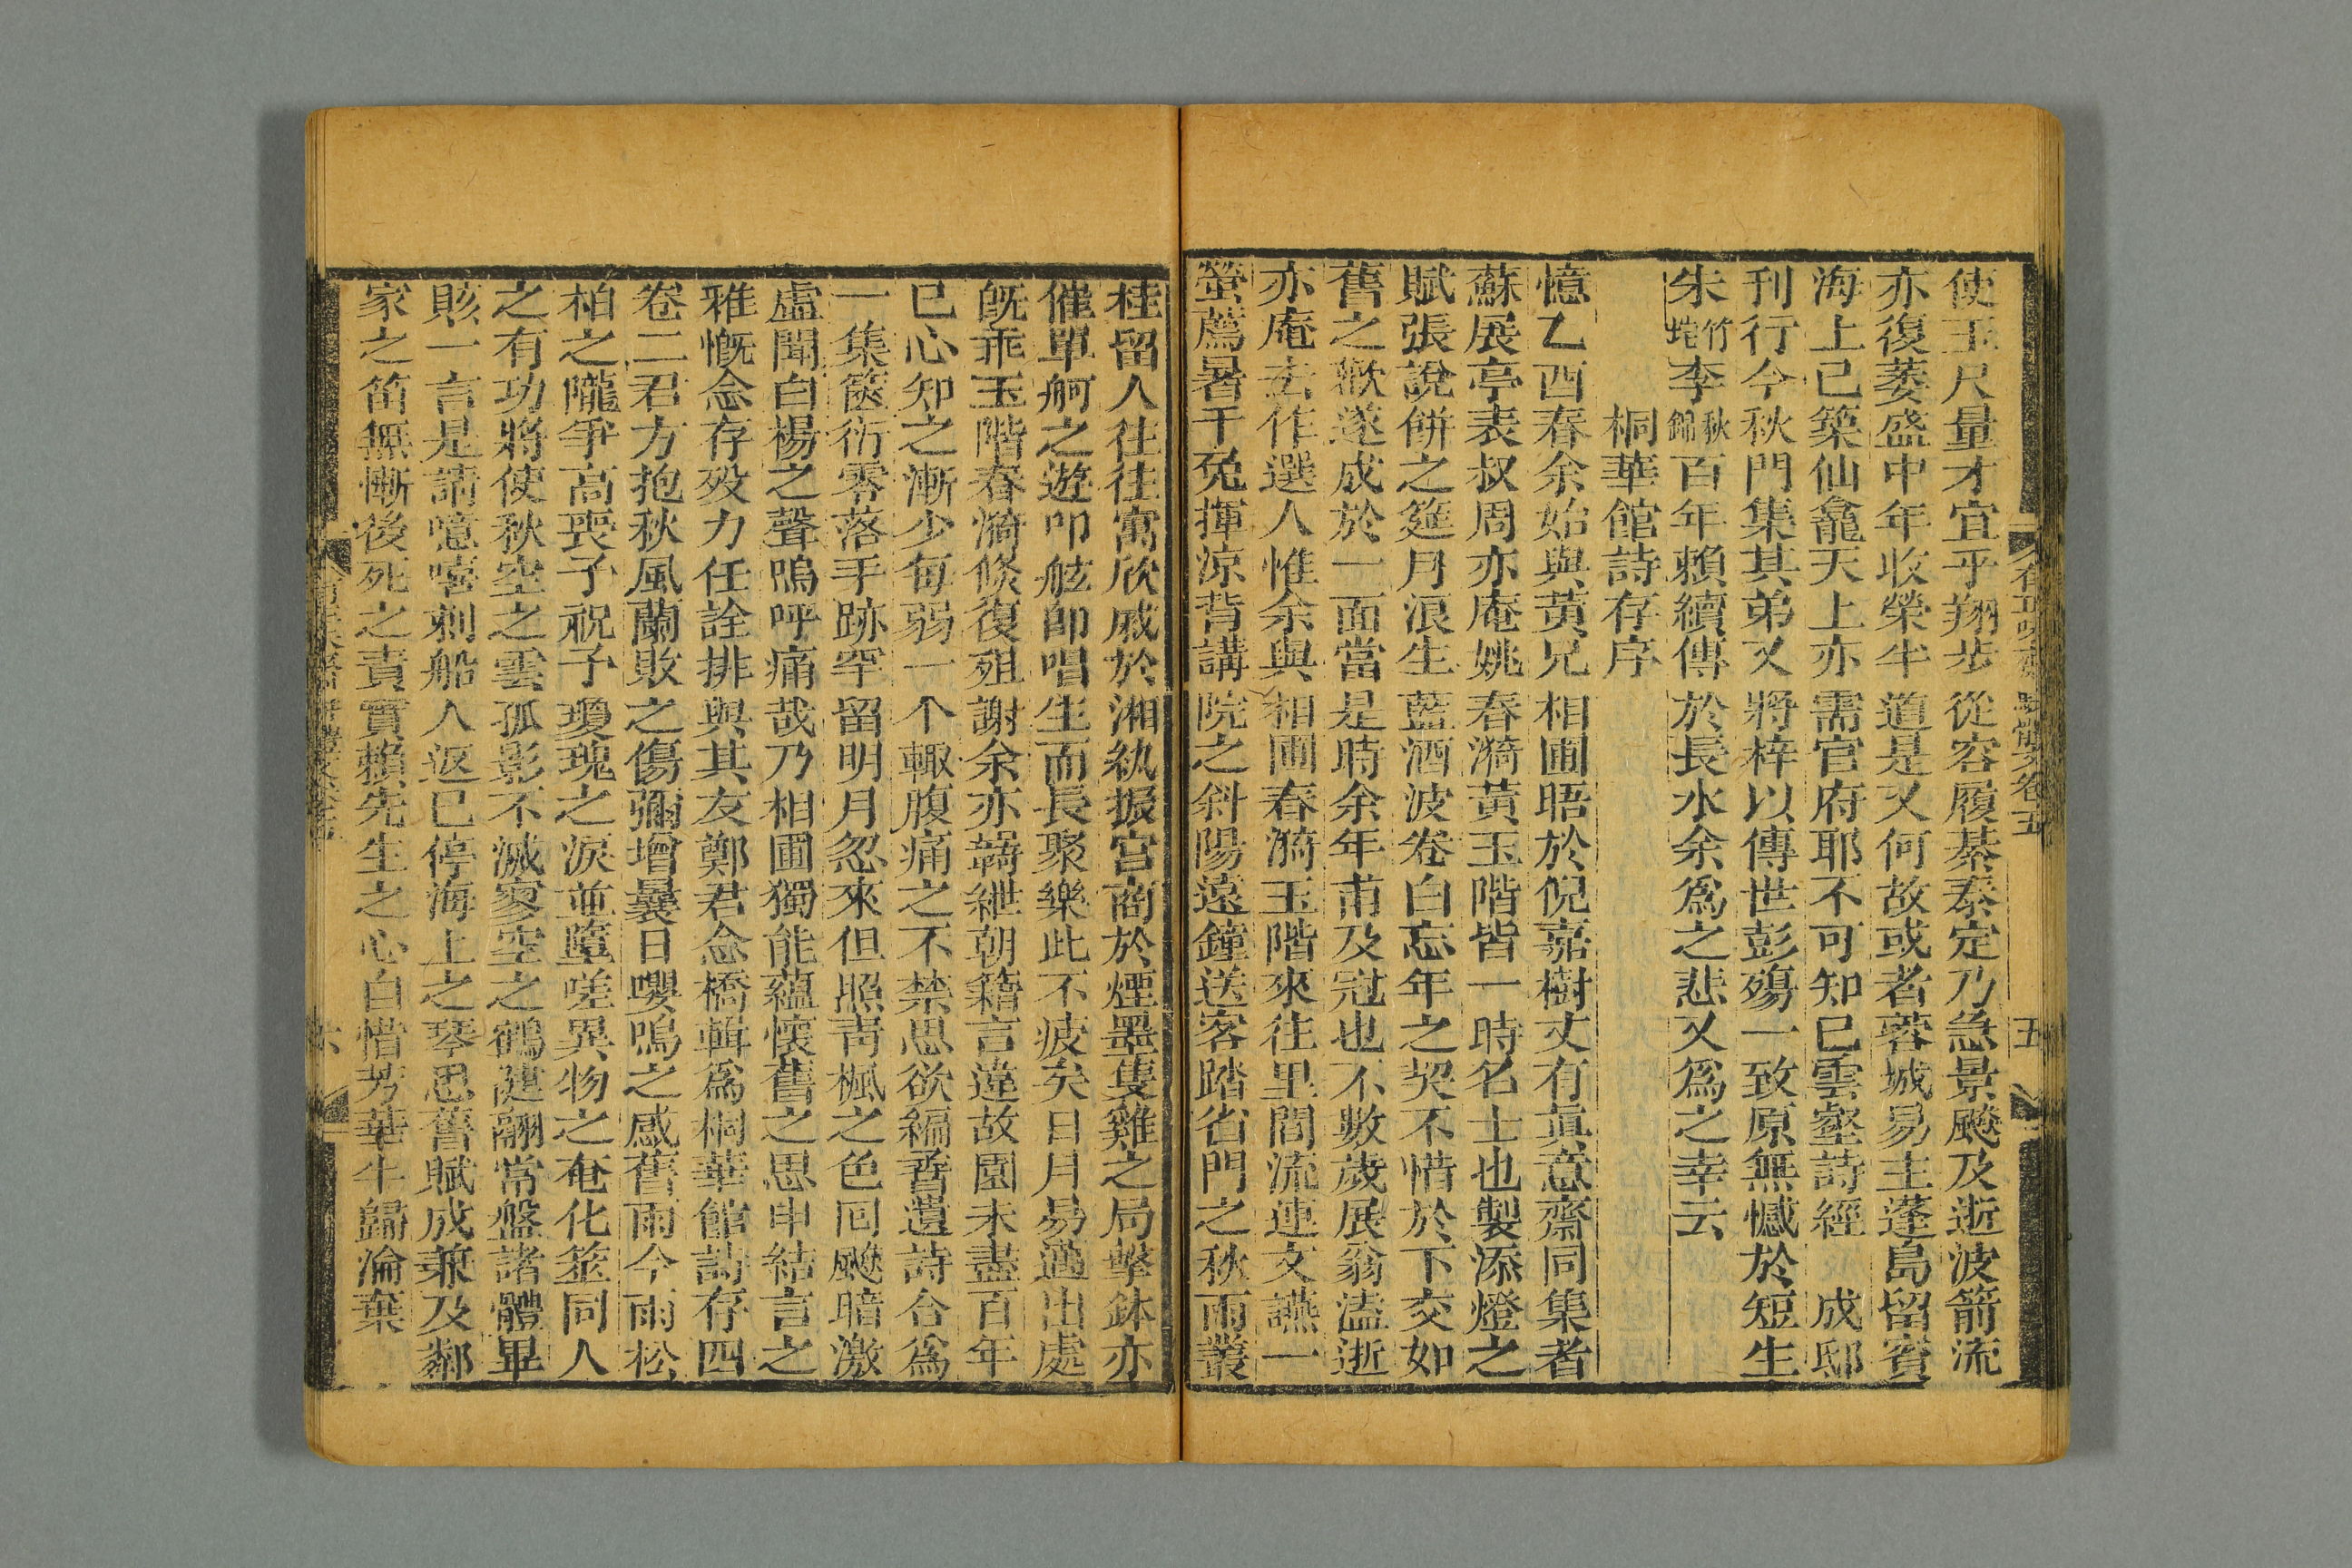 使玉尺量才宜乎翔步從容履綦泰定乃急景飈及逝波箭流
亦復萎盛中年收榮半道是又何故或者蓉城易主蓬島留賓
海上已築仙龕天上亦需官府耶不可知已雲壑詩經 成邸
刊行今秋門集其弟又將梓以傳世彭殤一致原無憾於短生
朱竹垞李秋錦百年賴續傳於長水余爲之悲又爲之幸云
桐華館詩存序
憶乙酉春余始與黃兄相圃晤於倪嘉樹丈有眞意齋同集者
蘇展亭表叔周亦庵姚春漪黃玉階皆一時名士也製添燈之
賦張說餅之筵月浪生藍酒波卷白忘年之契不惜於下交如
舊之歡遂成於一面當是時余年甫及冠也不數歲展翁溘逝
亦庵去作選人惟余與相圃春漪玉階來往里閈流連文讌一
螢薦暑千兔揮涼背講院之斜陽遠鐘送客踏省門之秋雨叢
桂留人往往寓欣戚於湘紈振宮商於煙墨隻雞之局擊鉢亦
催單舸之遊叩舷卽唱生而長聚樂此不疲矣日月易邁出處
旣乖玉階春漪倐復殂謝余亦羇紲朝籍言違故園未盡百年
已心知之漸少每弱一个輒腹痛之不禁思欲編耆遺詩合爲
一集篋衍零落手跡罕留明月忽來但照靑楓之色回飈暗激
虛聞白楊之聲嗚呼痛哉乃相圃獨能蘊懷舊之思申結言之
雅慨念存歿力任詮排與其友鄭君念橋輯爲桐華館詩存四
卷二君方抱秋風蘭敗之傷彌增曩日嚶鳴之感舊雨今雨松
柏之隴爭高喪予祝予瓊瑰之淚並墮嗟異物之奄化筮同人
之有功將使秋空之雲孤影不滅寥空之鶴健翮常盤諸體畢
賅一言是請噫嘻刺船人返已停海上之琴思舊賦成兼及鄰
家之笛無慚後死之責實賴先生之心自惜芳華半歸淪棄